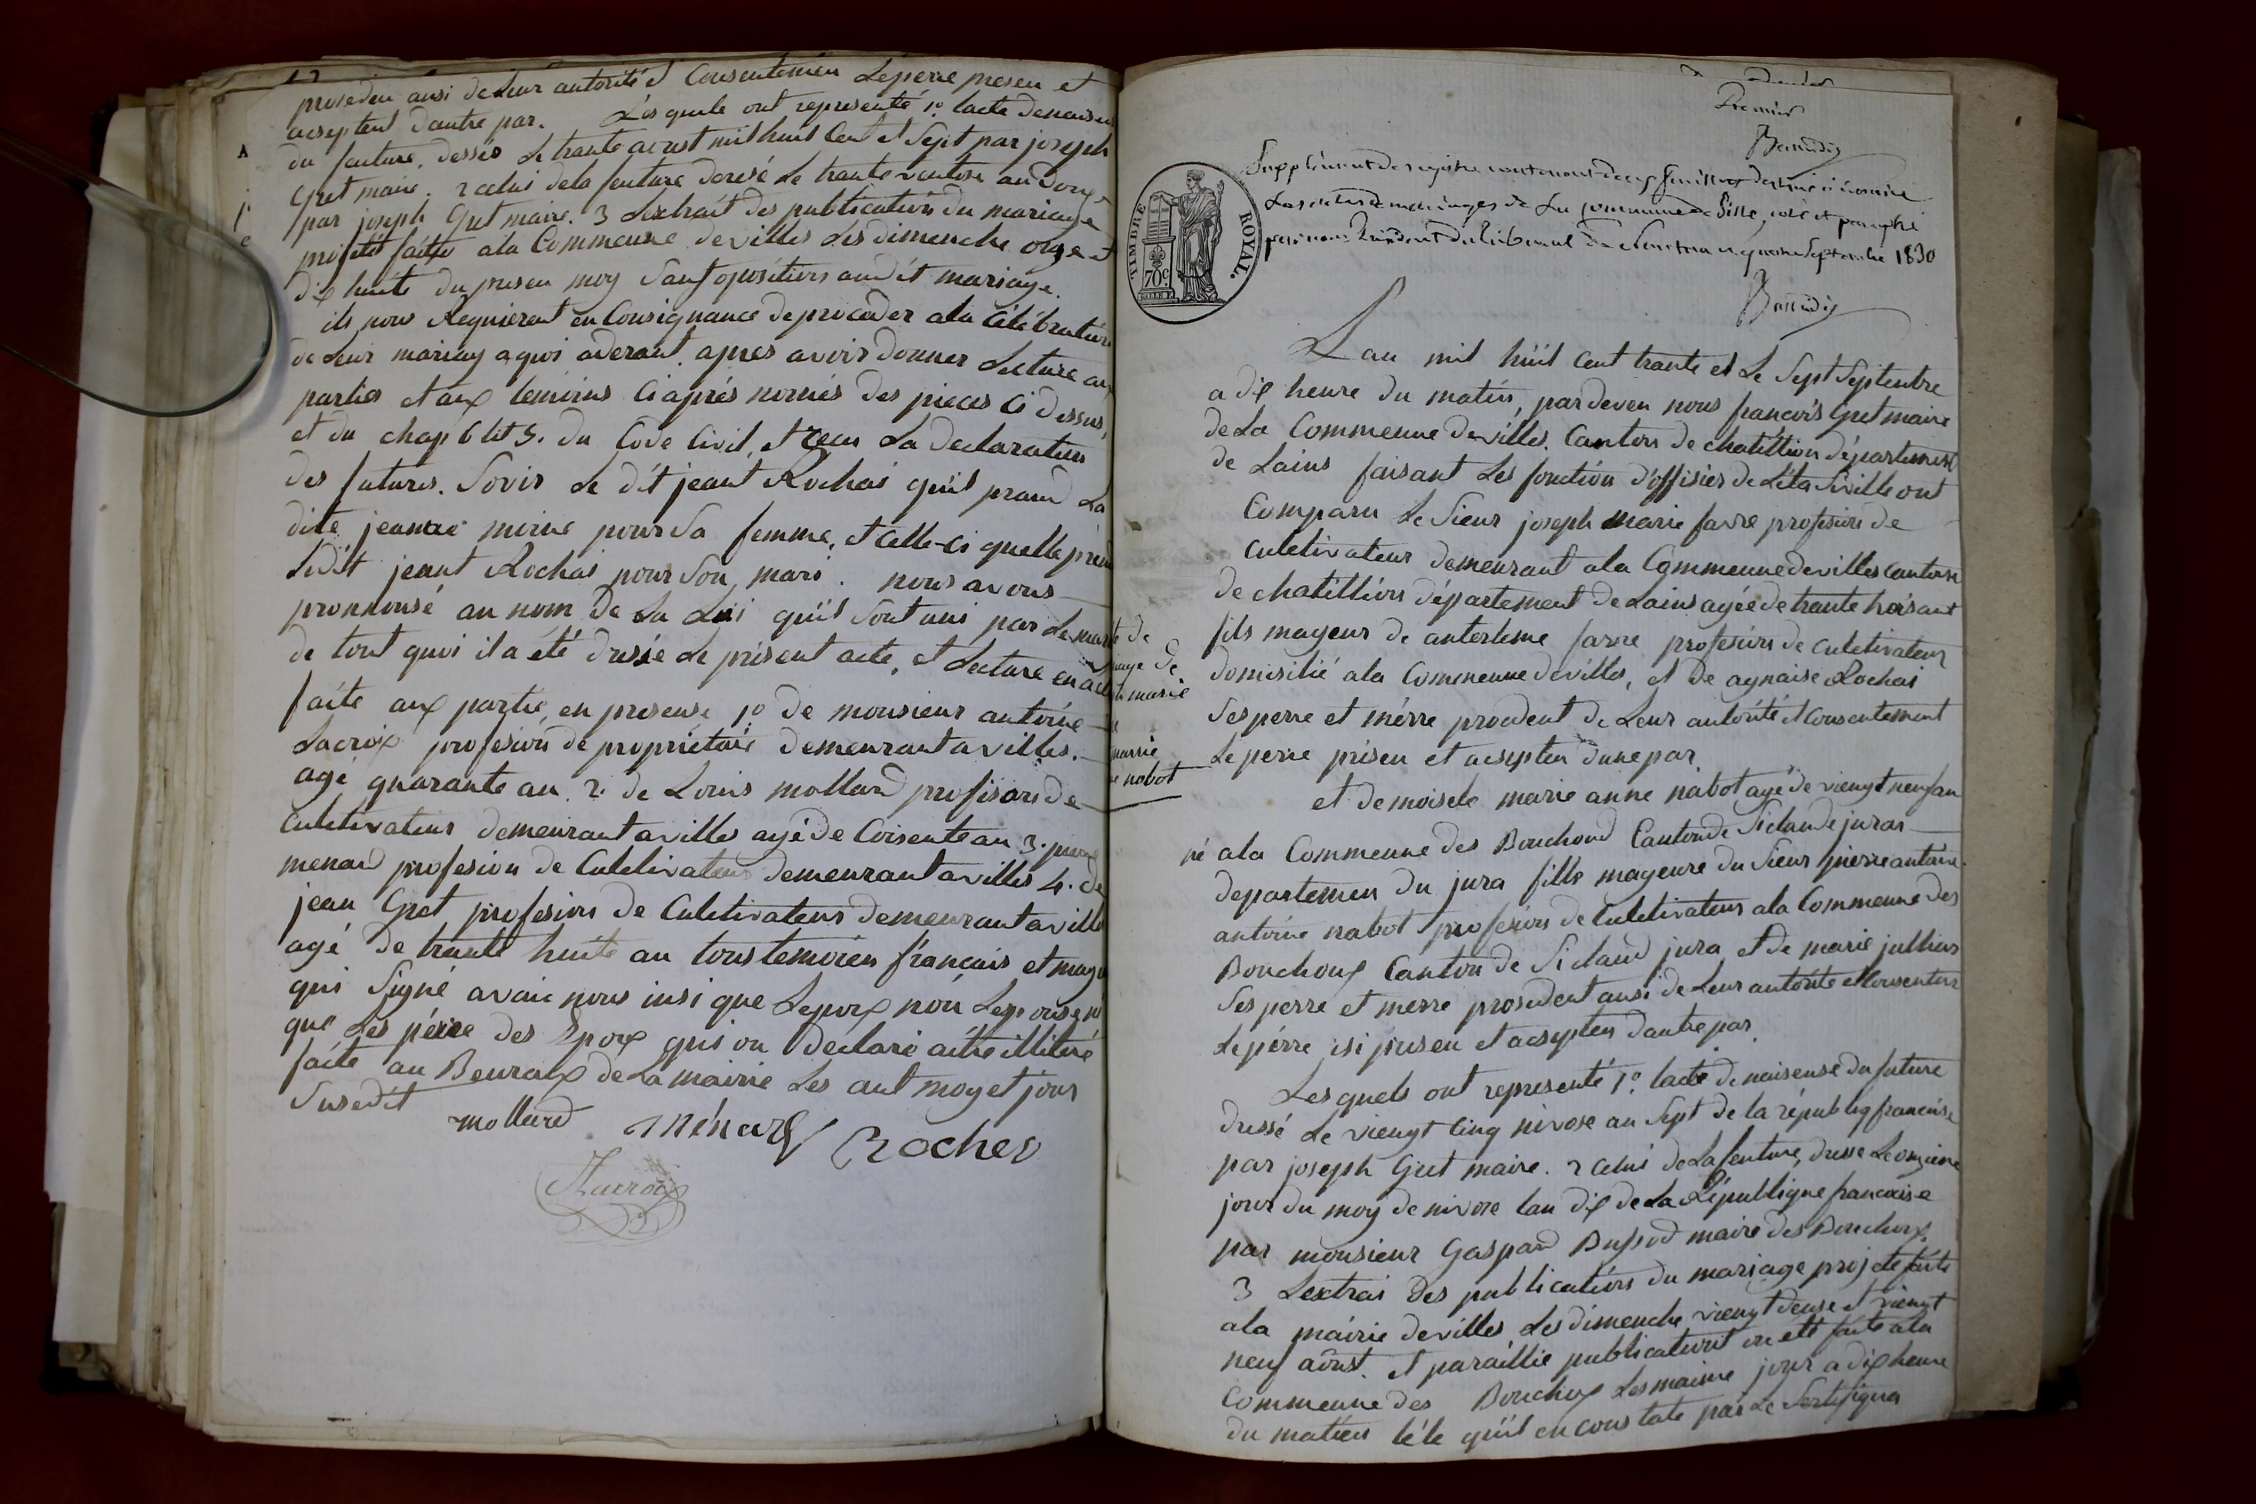 prosedeu ausi de Leur autorité et Consentemen Le perre preseu et
acseptent dautre par. Les quele ont representé 1º. lacte denaisense
du feuture. dessés Le trante aoust mil huit Cent et Sept par joseph
Gret maire. 2 celui dela feuture deresé Le trante ventose an Douze
par joseph Gret maire. 3 Lextrait des publicatións du mariage
projetté faitte ala Commeune devilles Les dimenche onze et
dix huite du preseu moy Sant opositions audit mariage.
ils nous Requierent en Consignance de proceder ala célébratión
de Leur mariay aquoi aderant. apres avoir donner Lecture aux
parties et aux temoins Ci aprés només des pieces Ci dessus,
et du chap 6 tit 5. du Code Civil, et recu La declaration
des futures. Sovir Le dit jeant Rochai quil prand La
dite jeanne moine pour Sa femme, et celle-ci quelle prend
Ledit jeant Rochai pour Son mari. nous avons
prononsé au nom de La Loi quil Sont uni par Le mari
de tout quoi il a été dresée Le présent acte, et Lecture en a été
faite aux partie, en presense 1º de monsieur antoine
Lacroix profesion de proprietaire demeurant a villes.
agé quarante an 2. de Louis mollard profision de
Culetivateur demeurant a villes agé de Coisente an 3.
menard profesion de Culetivateur demeurant a villes 4. de
jean Gret profesion de Culetivateur demeurant a ville
agé de trante huite an toustemoien français et mage
qui Signé avaic nous insi que Lepoux nón Lepouse ni
que Les péere des Epoux qui on declaré aitre illiteré
faite au Beuraux de La mairie Les ant moy et jour
Susedit
mollard ménard Rocher
Lacroix
Premier
Baudin
Supplément de registre contenant deux feuilles destiné à inscrire
Les actes de mariages de La commune de Ville, coté et paraphé
par nous Président du Tribunal de Nantua ce quatre Septembre 1830
Baudin
TIMBRE ROYAL.
70 c.
Lan mil huit cent trante et Le Sept Septenbre
a dix heure du matin, pardeven nous françois Gret maire
de La Commeune devilles. Canton de chatillion département
de Lains faisant Les fonction d'offisier de Léta Siville ont
Comparu Le Sieur joseph marie favre profesion de
Culetivateur demeurant ala Commeune devilles canton
de chatillion département de Lains agée de trante troisant
fils mageur de anterleme favre profesion de Culetivateur
domisilié ala Commeune devilles, et de aynaise Rochai
Sesperre et mérre procedent de Leur autorité et Consentement
Le perre presen et acsepten dunepar.
et demoisele marie anne nabot agé de viengt neuf an
né ala Commeune des Bouchoud Canton de Siclaude juras
departemen du jura fille mageure du Sieur pierre antoine
antoine nabot profesion de Culetivateur ala Commeune des
Bouchoux Canton de Siclaud jura, et de marie jullian
Ses perre et merre prosedent ausi de Leur autorite et Consenten
Le pérre isi presen et acsepten dautrepar.
Les quels ont representé 1º. lacte de naisense du future
dressé Le viengt cinq nivose an Sept de la républiq francaise
par joseph Gret maire. 2 celui de La feuture, dresse Le onzieme
jour du moy de nivose lan dix de La République francaise
par monsieur Gaspard Bussod maire des Bouchoux.
3 Lextrai des publicatións du mariage projeté faite
ala mairie devilles Les dimenche viengt deuse et viengt
neuf aoûst. et paraillie publicationt on etté faite ala
Commeune des Bouchoux Lesmaime jour a dix heure
du matien téle quil en constate par Le Sertifiqua
de
mariage de
marie
marie
nabot